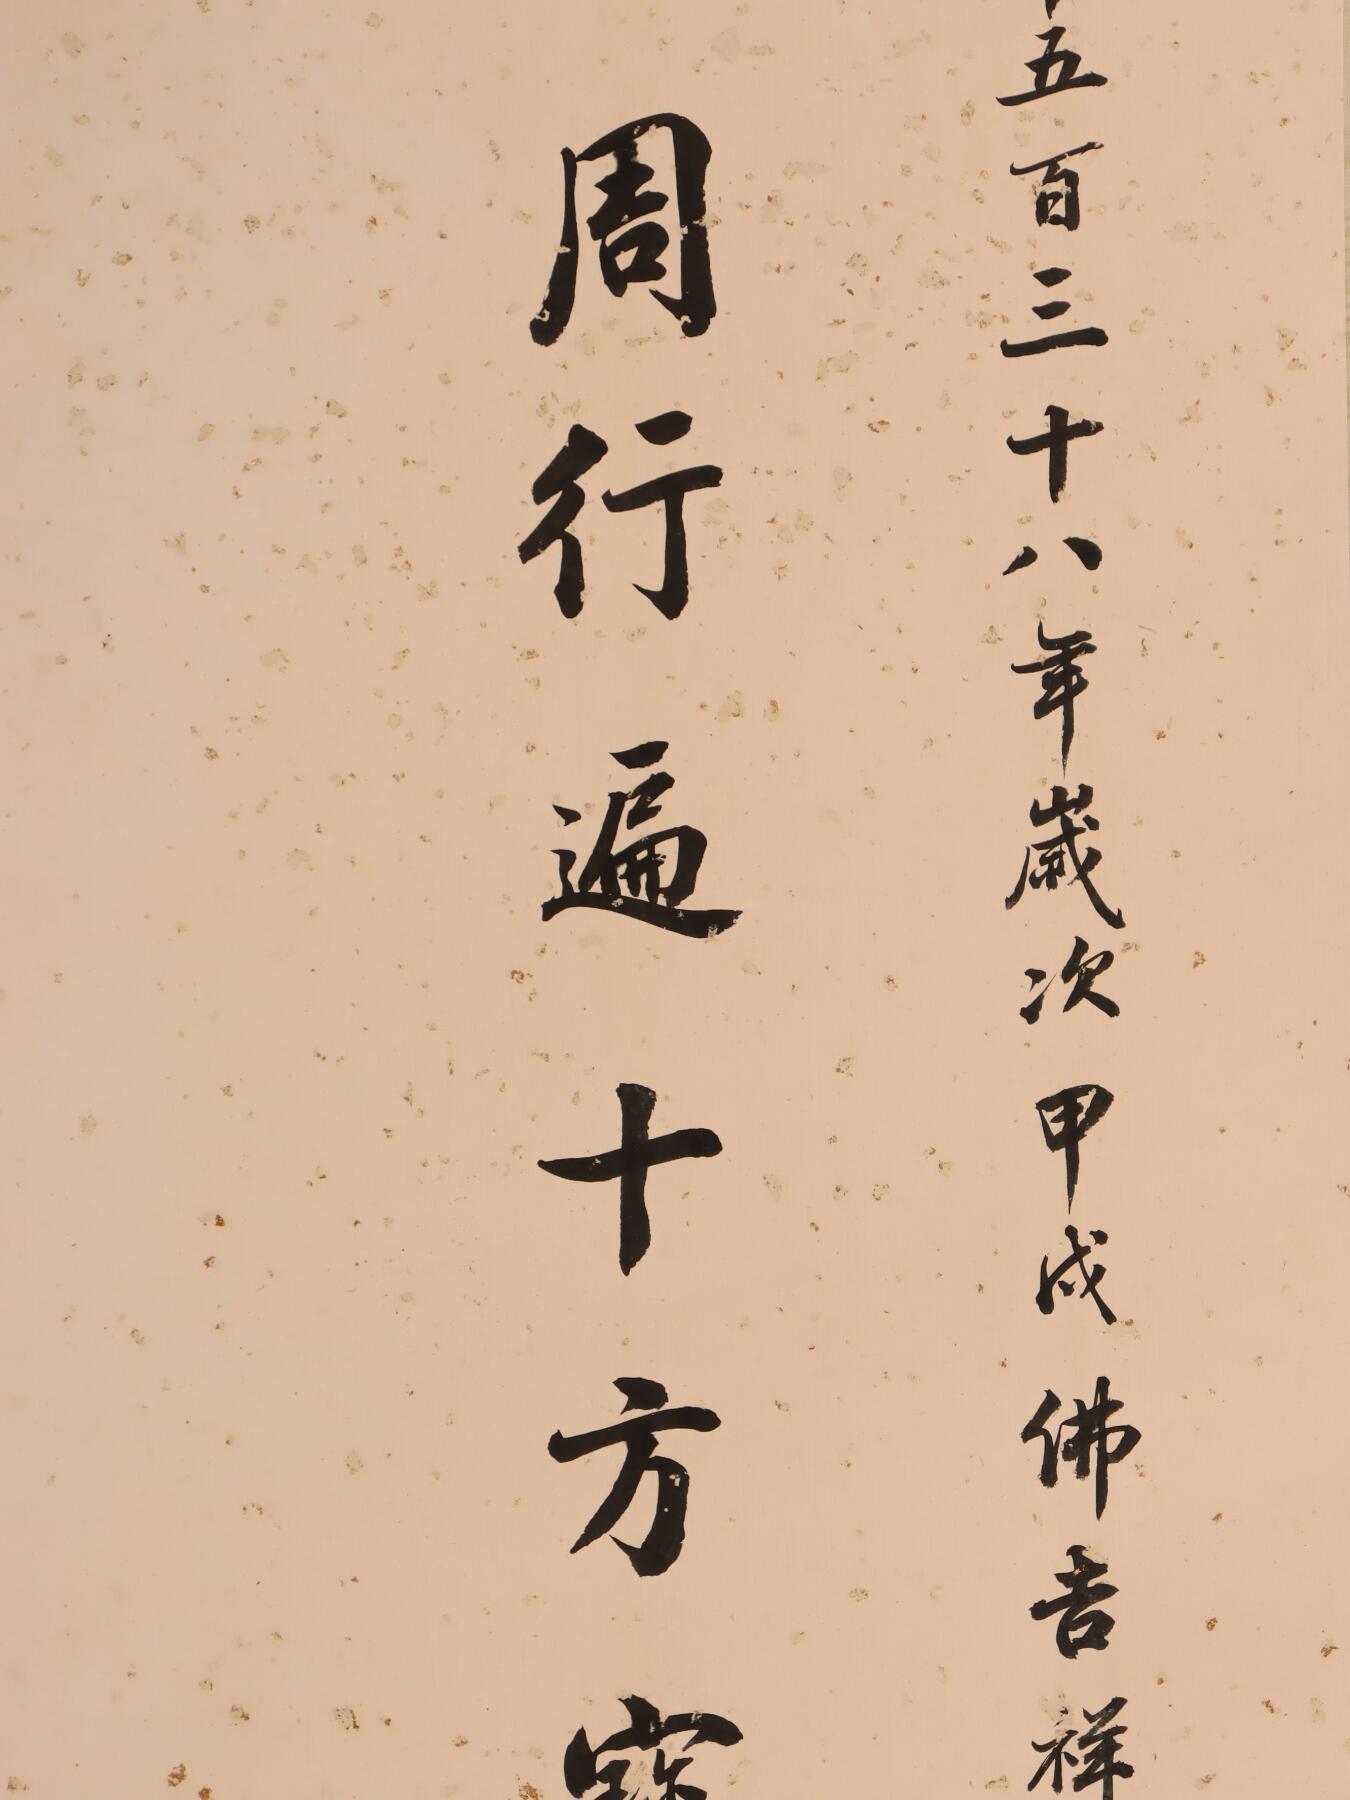 五百三十八年歲次甲戌佛吉祥
周行遍十方